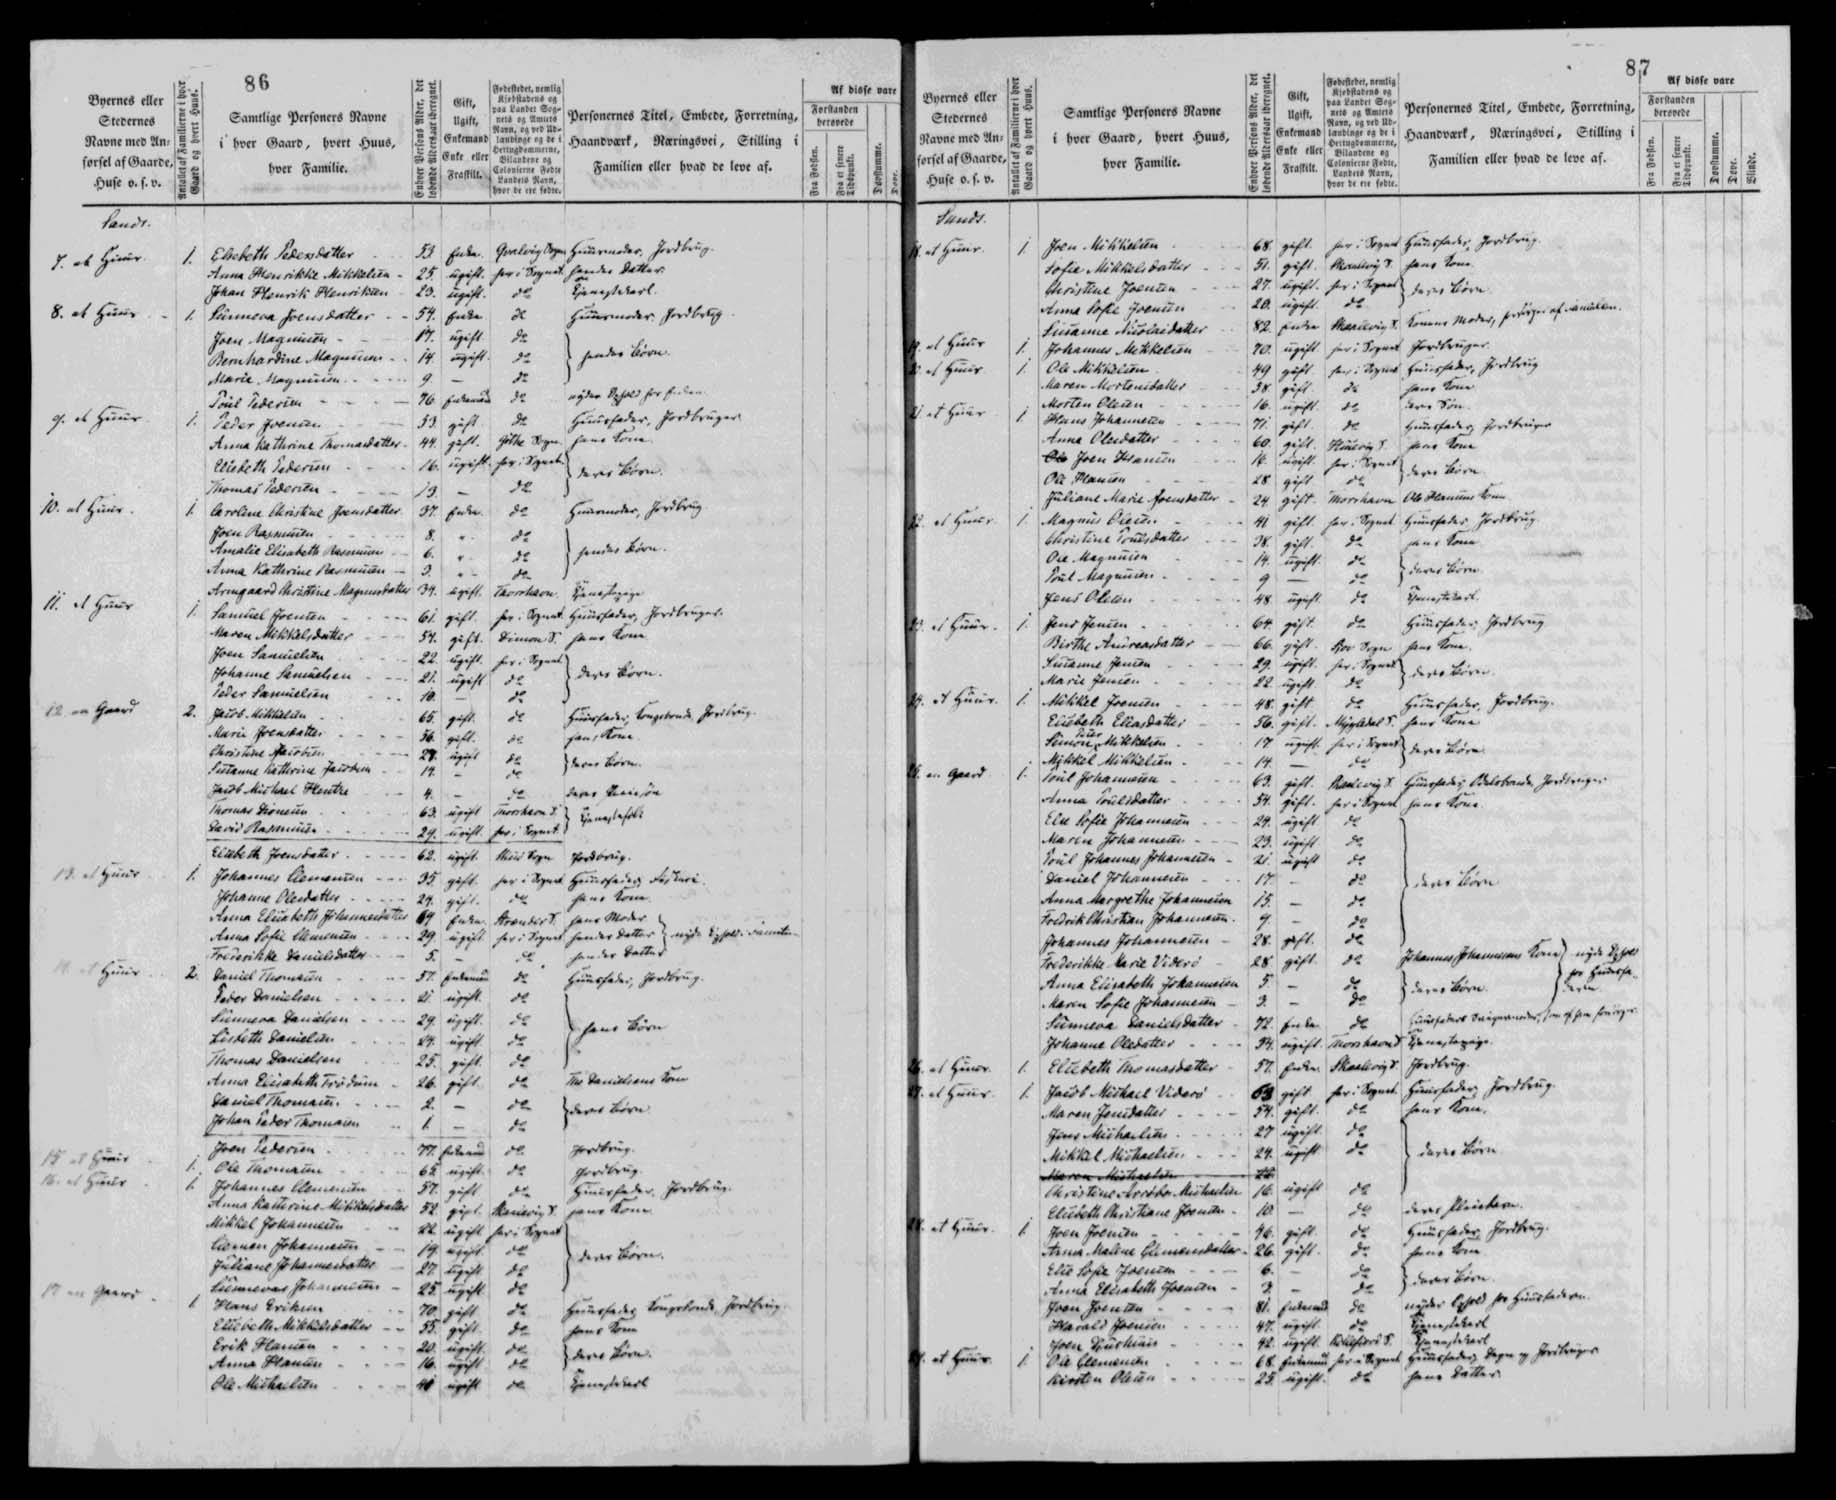 86
Byernes eller Stedernes Navne med Anførsel af Gaarde, Huse o. s. v.
Antallet af Familierne i hver Gaard og hvert Huus.
Samtlige Personers Navne i hver Gaard, hvert Huus, hver Familie.
Enhver Persons Alder, det løbende Aldersaar iberegnet.
Gift, Ugift, Enkemand Enke eller Fraskilt.
Fødestedet, nemlig Kjøbstadens og paa Landet Sognets og Amtets Navn, og ved Udlændinge og de i Hertugdømmerne, Bilandene og Colonierne Fødte Landets Navn, hvor de ere fødte.
Personernes Titel, Embede, Forretning, Haandværk, Næringsvei, Stilling i Familien eller hvad de leve af.
Af disse vare
Forstanden berøvede
Fra Fødslen.
Fra et senere Tidspunkt.
Døvstumme.
Døve.
Sands.
7. et Huus. 1. Elsebeth Pedersdatter 53. Enke. Huusmoder, Jordbrug.
Anna Henrikke Mikkelsen 25. ugift. her i Sognet hendes Datter
Johan Henrik Henriksen 23. ugift. do Tjenestekarl.
8. et Huus 1. Sunneva Joensdatter 54. Enke do Huusmoder, Jordbrug
Joen Magnusen 17. ugift do
Bernhardine Magnusen 14. ugift. do hendes Børn.
Marie Magnusen 9. — do
Poul Pedersen 76. Enkemand do
9. et Huus 1. Peder Joensen 53. gift. do Huusfader, Jordbruger
Anna Kathrine Thomasdatter 44. gift. Gøthe Sogn. hans Kone
Elsebeth Pedersen 16. ugift. her i Sognet. deres Børn.
Thomas Pedersen 13. — do
10. et Huus. 1. Caroline Christine Joensdatter 37. Enke. do Huusmoder, Jordbrug
Joen Rasmusen 8. " do
Amalie Elisabeth Rasmusen 6. " do hendes Børn.
Anna Kathrine Rasmusen 3. " do
Armgaard Christine Magnusdatter 34. ugift. Thorshavn. Tjenestepige
11. et Huus 1. Samuel Joensen 61. gift. her i Sognet. Huusfader, Jordbruger.
Maren Mikkelsdatter 54. gift. Dimon S. hans Kone
Joen Samuelsen 22. ugift. her i Sognet
Johanne Samuelsen 21. ugift do deres Børn.
Peder Samuelsen 10. — do
12. en Gaard 2. Jacob Mikkelsen 65. gift. do Huusfader, Kongsbonde, Jordbrug.
Marie Joensdatter 56. gift. do hans Kone
Christine Jacobsen ugift do deres Børn.
Susanne Kathrine Jacobsen 14. — do
Jacob Michael Hentze 4. — do deres Pleiesøn
Thomas Dionesen 63. ugift Thorshavn S. Tjenestefolk
David Rasmusen 29. ugift. her i Sognet.
Elsebeth Joensdatter 62. ugift. Sogn Jordbrug.
13. et Huus 1. Johannes Clemensen 35. gift. her i Sognet Huusfader, Fiskeri.
Johanne Olesdatter 29. gift. do hans Kone.
Anna Elisabeth Johannesdatter 69 Enke. hans Moder
Anna Sofie Clemensen 29. ugift her i Sognet hendes Datter
Frederikke Danielsdatter 5. — do hendes Datter
14. et Huus. 2. Daniel Thomasen 57. Enkemand do Huusfader, Jordbrug.
Peder Danielsen 21. ugift. do
Sunneva Danielsen 29. ugift. do hans Børn
Lisbeth Danielsen 24. ugift. do
Thomas Danielsen 25. gift. do
Anna Elisabeth Trødsen 26. gift. do Ths Danielsens Kone
Daniel Thomasen. 2. — do deres Børn.
Johan Peder Thomasen 1. — do
Joen Pedersen 77. Enkemand do Jordbrug.
15. et Huus 1. Ole Thomasen 65. ugift. do Jordbrug.
16. et Huus 1. Johannes Clemensen 57. gift do Huusfader, Jordbrug.
Anna Kathrine Mikkelsdatter 52. gift. S. hans Kone
Mikkel Johannesen 22. ugift her i Sognet
Clemen Johannesen 19. ugift. do deres Børn.
Juliane Johannesdatter 27. ugift do
Sunneva Johannesen 25. ugift do
17. en Gaard 1. Hans Eriksen 70. gift. do Huusfader, Kongsbonde, Jordbrug.
Elsebeth Mikkelsdatter 55. gift. do hans Kone
Erik Hansen 20. ugift. do deres Børn.
Anna Hansen 16. ugift do
Ole Michaelsen ugift do Tjenestekarl
87
Byernes eller Stedernes Navne med Anførsel af Gaarde, Huse o. s. v.
Antallet af Familierne i hver Gaard og hvert Huus.
Samtlige Personers Navne i hver Gaard, hvert Huus, hver Familie.
Enhver Persons Alder, det løbende Aldersaar iberegnet.
Gift, Ugift, Enkemand Enke eller Fraskilt.
Fødestedet, nemlig Kjøbstadens og paa Landet Sognets og Amtets Navn, og ved Udlændinge og de i Hertugdømmerne, Bilandene og Colonierne Fødte Landets Navn, hvor de ere fødte.
Personernes Titel, Embede, Forretning, Haandværk, Næringsvei, Stilling i Familien eller hvad de leve af.
Af disse vare
Forstanden berøvede
Fra Fødslen.
Fra et senere Tidspunkt.
Døvstumme.
Døve.
Blinde.
Sands.
18. et Huus. 1 Joen Mikkelsen 68. gift. her i Sognet Huusfader, Jordbrug.
Sofie Mikkelsdatter 51. gift. Skaalevig S. hans Kone.
Christine Joensen 27. ugift. her i Sognet deres Børn.
Anna Sofie Joensen 20. ugift do
Susanne Nicolaidatter 82. Enke Skaalevig S. Konens Moder, forsørges af Familien.
19. et Huus 1. Johannes Mikkelsen 70. ugift. her i Sognet Jordbruger.
20. et Huus 1 Ole Mikkelsen 49 gift her i Sognet Huusfader, Jordbrug
Maren Mortensdatter 58 gift. do hans Kone
Morten Olesen 16. ugift. do deres Søn.
21. et Huus 1. Hans Johannesen 71. gift. do Huusfader, Jordbruger
Anna Olesdatter 60. gift. S. hans Kone
Joen Hansen ugift. her i Sognet deres Børn.
Ole Hansen 28 gift do
Juliane Marie Joensdatter 24. gift. Thorshavn Ole Hansens Kone
22. et Huus. 1 Magnus Olesen 41 gift. her i Sognet Huusfader, Jordbrug
Christine Poulsdatter 38. gift. do hans Kone
Ole Magnusen 14. ugift. do deres Børn
Poul Magnusen 9 — do
Jens Olesen 48. ugift. do Tjenestekarl.
23. et Huus. 1. Jens Jensen 64. gift. do Huusfader, Jordbrug
Birthe Andreasdatter 66. gift. Sogn hans Kone.
Susanne Jensen 29. ugift. her i Sognet deres Børn.
Marie Jensen 22. ugift do
24. et Huus. 1. Mikkel Joensen 48. gift do Huusfader, Jordbrug.
Elsebeth Eliasdatter 56. gift. Mygledal S. hans Kone
Simon Peter Mikkelsen 17 ugift. her i Sognet deres Børn
Mikkel Mikkelsen 14. — do
25. en Gaard 1. Poul Johannesen 63. gift. Skaalevig S. Huusfader, Odelsbonde, Jordbruger
Anna Poulsdatter 54. gift. her i Sognet hans Kone.
Else Sofie Johannesen 24. ugift do
Maren Johannesen 23. ugift. do
Poul Johannes Johannesen 21. ugift do
Daniel Johannesen 17. — do deres Børn
Anna Margrethe Johannesen 15. — do
Fredrik Christian Johannesen. 9. — do
Johannes Johannesen 28. gift. do
Frederikke Marie Viderø 28 gift. do Johannes Johannesens Kone
Anna Elisabeth Johannesen 5. — do deres Børn.
Maren Sofie Johannesen 3. — do
Sunneva Danielsdatter 72. Enke do
Johanne Olesdatter 54. ugift. Thorshavn S Tjenestepige.
26. et Huus. 1. Elsebeth Thomasdatter 57. Enke. Skaalevig S. Jordbrug.
27. et Huus. 1. Jacob Michael Viderø 63 gift her i Sognet Huusfader, Jordbrug.
Maren Jensdatter 54. gift. do hans Kone.
Jens Michaelsen 27 ugift. do
Mikkel Michaelsen 24. ugift do deres Børn
Maren Michaelsen
Christine Arrebo Michaelsen 16. ugift do
Elsebeth Christiane Joensen 10 — do deres Pleiebarn.
28. et Huus. 1. Joen Joensen 46. gift. do Huusfader, Jordbrug.
Anna Malene Clemensdatter 26. gift. do hans Kone
Else Sofie Joensen 6. — do deres Børn.
Anna Elisabeth Joensen 3. — do
Joen Joensen 81. Enkemand do nyder Ophold for Huusfaderen.
Harald Joensen 47. ugift. do Tjenestekarl
Joen 42. ugift. S. Tjenestekarl
29. et Huus. 1. Ole Clemensen 68. Enkemand her i Sognet Huusfader, Degn og Jordbruger
Kirsten Olesen 25. ugift. do hans Datter